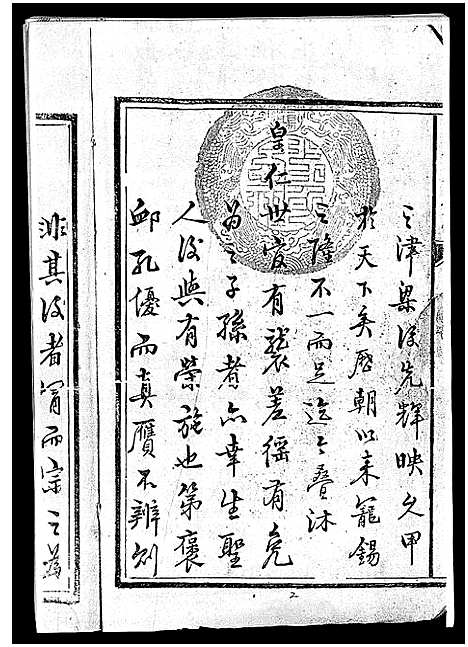 之津梁後先輝映久甲
於天下矣歷朝以來寵錫
之隆不一而足迄今疊沐
皇仁世官有襲差徭有免
為之子孫者亦幸生聖
人後與有榮施也第褒
卹孔優而真贋不辨則
非其後者冒而宗之為
2